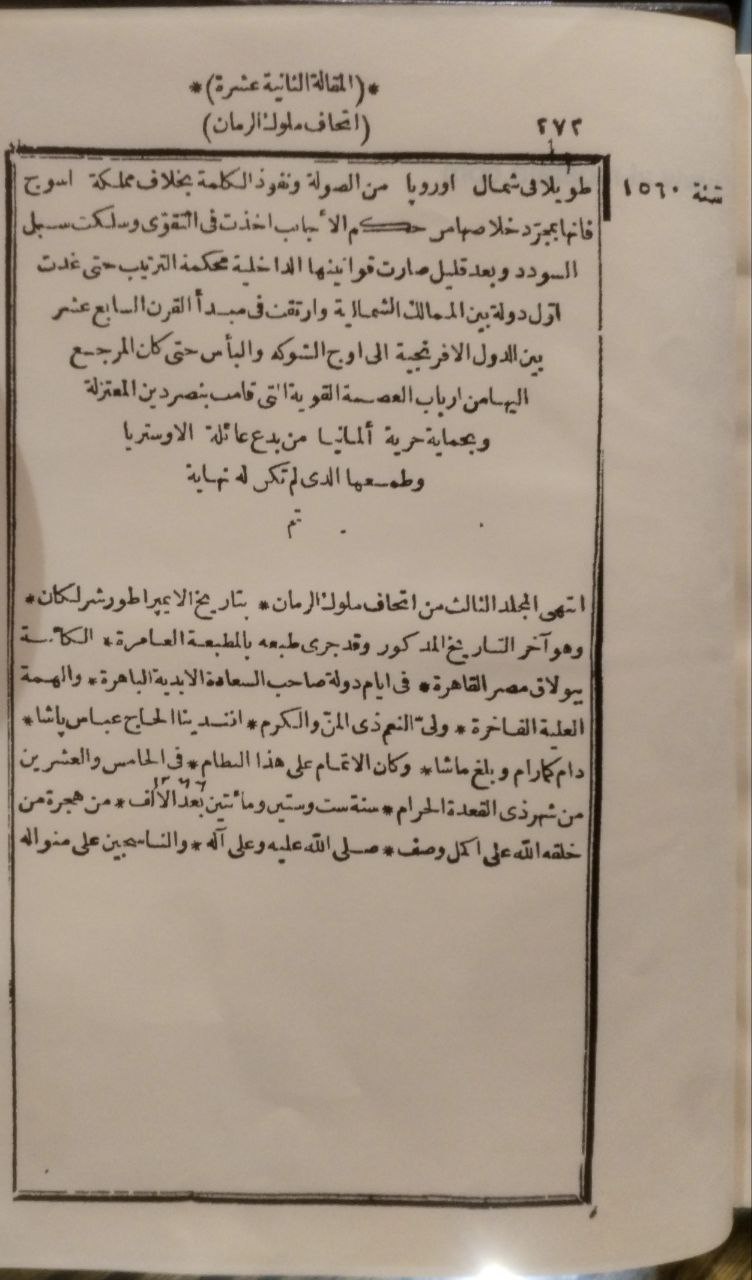 *(المقالة الثانية عشرة)*
٢٧٢ (اتحاف ملوك الزمان)
سنة ١٥٦٠
طويلا فى شمال اوروپا من الصولة ونفوذ الكلمة بخلاف مملكة اسوج
فانها بمجرّد خلاصها من حكم الأجانب اخذت فى التقوّى وسلكت سبل
السودد وبعد قليل صارت قوانينها الداخلية محكمة الترتيب حتى غدت
اوّل دولة بين الممالك الشمالية وارتقت فى مبدأ القرن السابع عشر
بين الدول الافرنجية الى اوج الشوكه والبأس حتى كان المرجع
اليها من ارباب العصمة القوية التى قامت بنصر دين المعتزلة
وبحماية حرية ألمانيا من بدع عائلة الاوستريا
وطمعها الذى لم تكن له نهاية
تم
انتهى المجلد الثالث من اتحاف ملوك الزمان * بتاريخ الايمپراطور شرلكان *
وهو آخر التاريخ المذكور وقد جرى طبعه بالمطبعة العامرة * الكائنة
ببولاق مصر القاهرة * فى ايام دولة صاحب السعادة الابدية الباهرة * والهمة
العلية الفاخرة * ولىّ النعم ذى المنّ والكرم * افندينا الحاج عباس پاشا *
دام كمارام وبلغ ماشا * وكان الاتمام على هذا النظام * فى الخامس والعشرين
من شهر ذى القعدة الحرام * سنة ست وستين ومائتين بعد الألف * من هجرة من
١٢٦٦
خلقه الله على اكمل وصف * صلى الله عليه وعلى آله * والناسجين على منواله